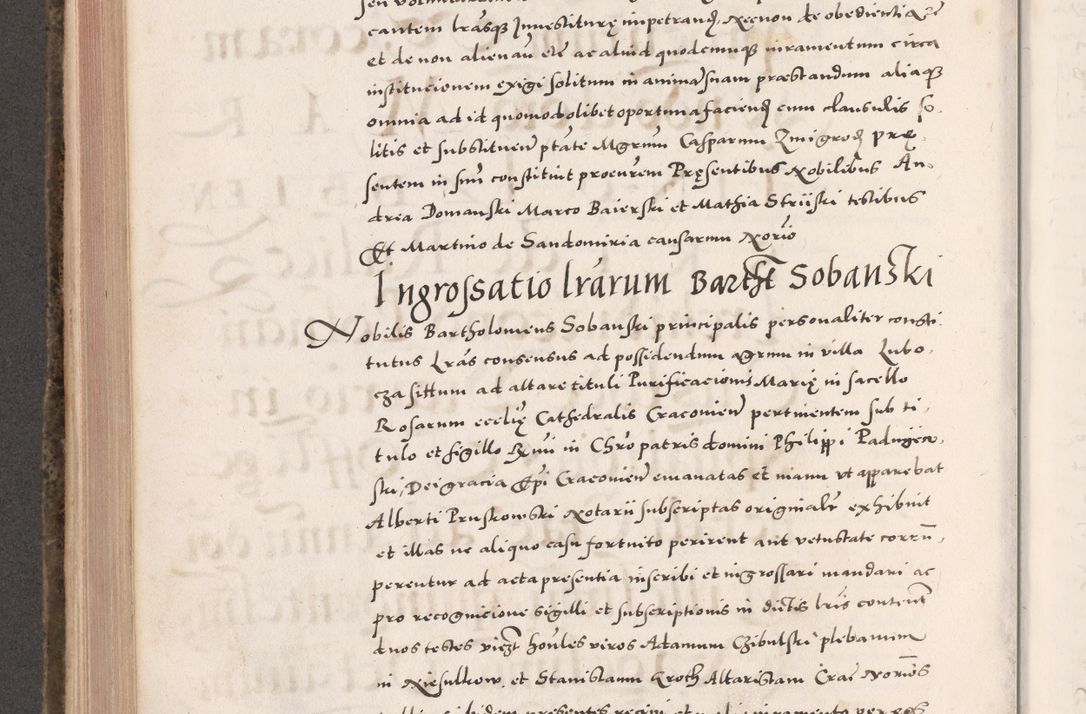 cantem lrasq Investiturę impetrand, Necnon de obedientia
et de non alienan etc ac aliud quodcumq iuramentum circa
institucionem exigi solitum in animam suam praestandum aliaq
omnia ad id quomodolibet oportuna faciend cum clausulis so-
litis et substituen ptate Mgrum Casparum Zmigrod prę-
sentem in sim constituit procurem Pręsentibus Nobilibus An-
drea Domanski Marco Baierski et Mathia Strijski testibus
Et Martino de Sandomiria causarum Norio
Ingrossatio lrarum Barthi Sobanski
Nobilis Bartholomeus Sobanski principalis personaliter consti-
tutus lras consensus ad possidendum agrum in villa Lubo-
cza sittum ad altare tituli Purificacionis Marię in sacello
Rosarum ecclię Cathedralis Cracovien pertinentem sub ti-
tulo et sigillo Rmi in Chro patris domini Philippi Padnijew-
ski, Dei gracia Epi Cracovien emanatas et manu ut apparebat
Alberti Pruskowski Notarii subscriptas originalr exhibuit
et illas ne aliquo casu fortuito perirent aut vetustate corrum-
perentur ad acta presentia inscribi et ingrossari mandari ac
pro recognicione sigilli et subscriptionis in dictis lris content
duos testes viczt honles viros Adamum Czibulski plebanum
in Niesulkow et Stanislaum Kroth Altaristam Crac Norios